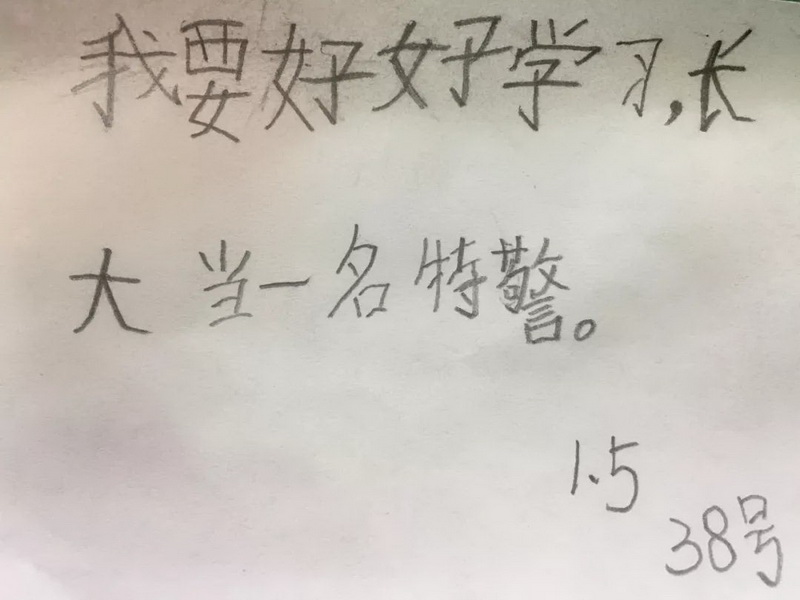 我要好好学习,长
大当一名特警。
1.5
38号